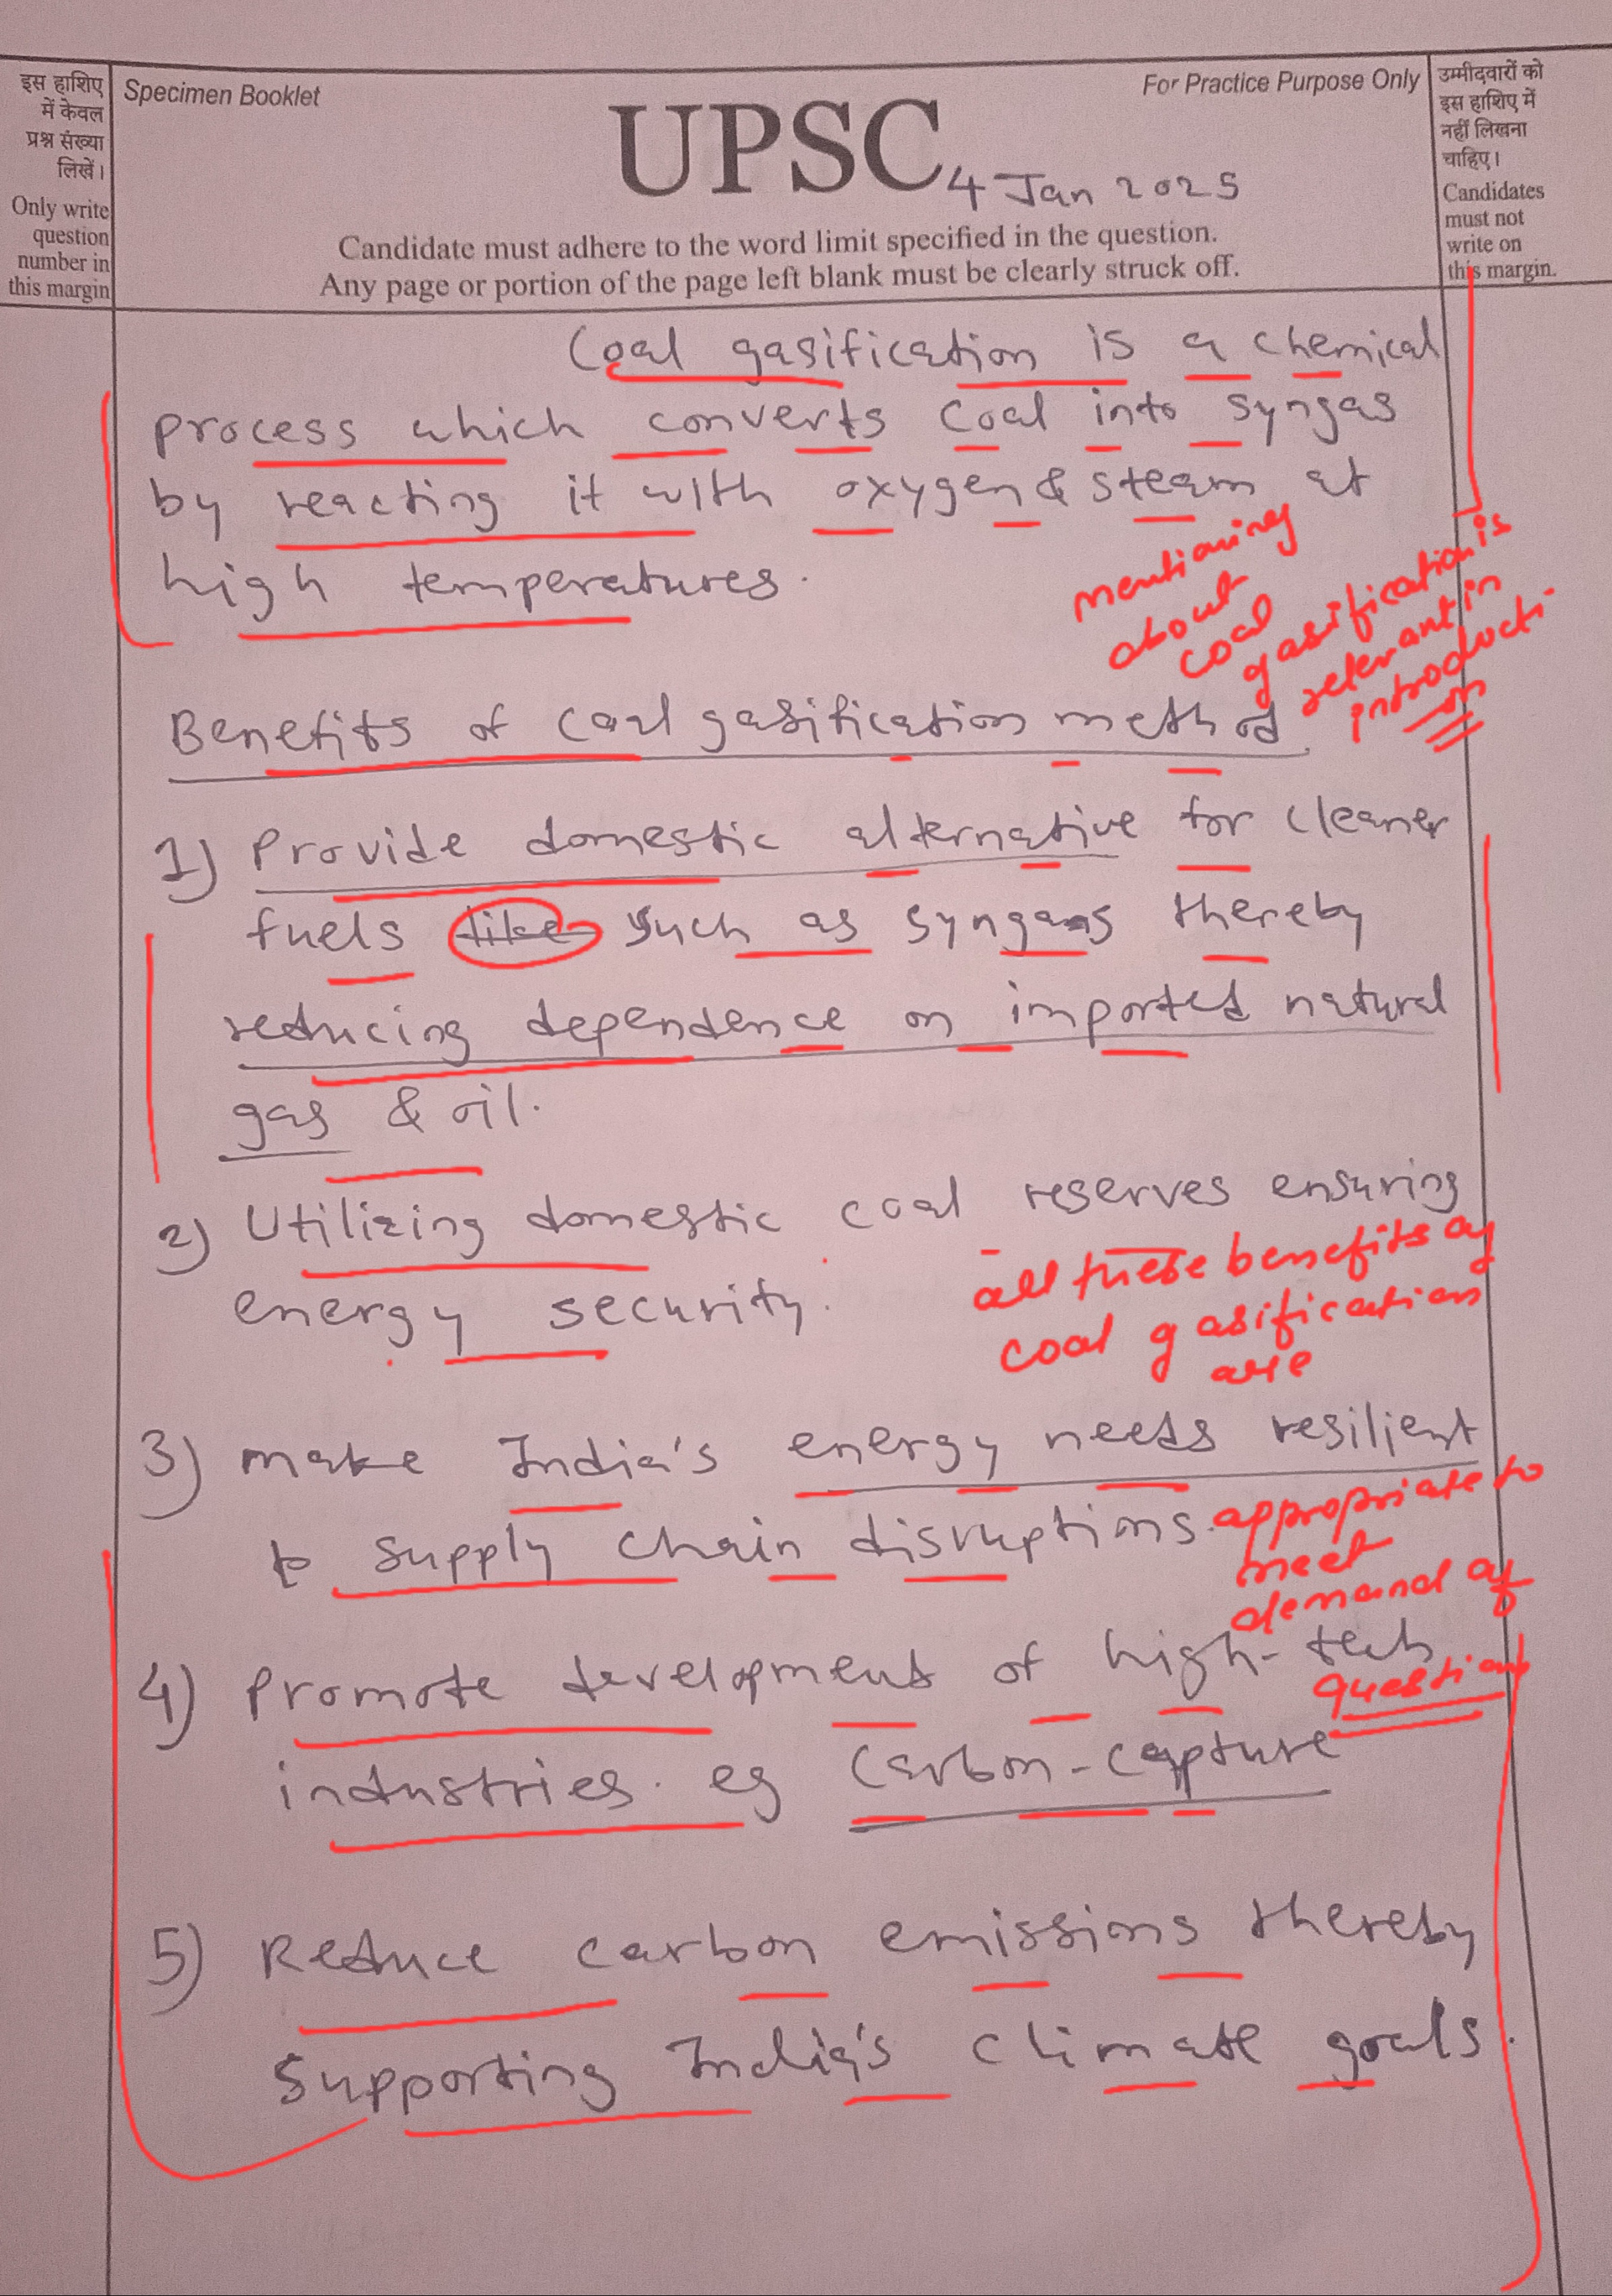 इस हाशिए
में केवल
प्रश्न संख्या
लिखें।
Only write
question
number in
this margin
Specimen Booklet
For Practice Purpose Only
UPSC
4 Jan 2025
Candidate must adhere to the word limit specified in the question.
Any page or portion of the page left blank must be clearly struck off.
उम्मीदवारों को
इस हाशिए में
नहीं लिखना
चाहिए।
Candidates
must not
write on
this margin.
Coal gasification is a chemical
process which converts coal into syngas
by reacting it with oxygen & steam at
high temperatures.
mentioning
about
coal
gasification is
relevant in
introducti
on
Benefits of coal gasification method
1) Provide domestic alternative for cleaner
fuels like such as syngas thereby
reducing dependence on imported natural
gas & oil.
2) Utilizing domestic coal reserves ensuring
energy security.
all these benefits of
coal gasification
are
3) make India's energy needs resilient
to supply chain disruptions.
appropriate to
meet
demand of
question
4) Promote development of high-tech
industries. eg Carbon-capture
5) Reduce carbon emissions thereby
supporting India's climate goals.